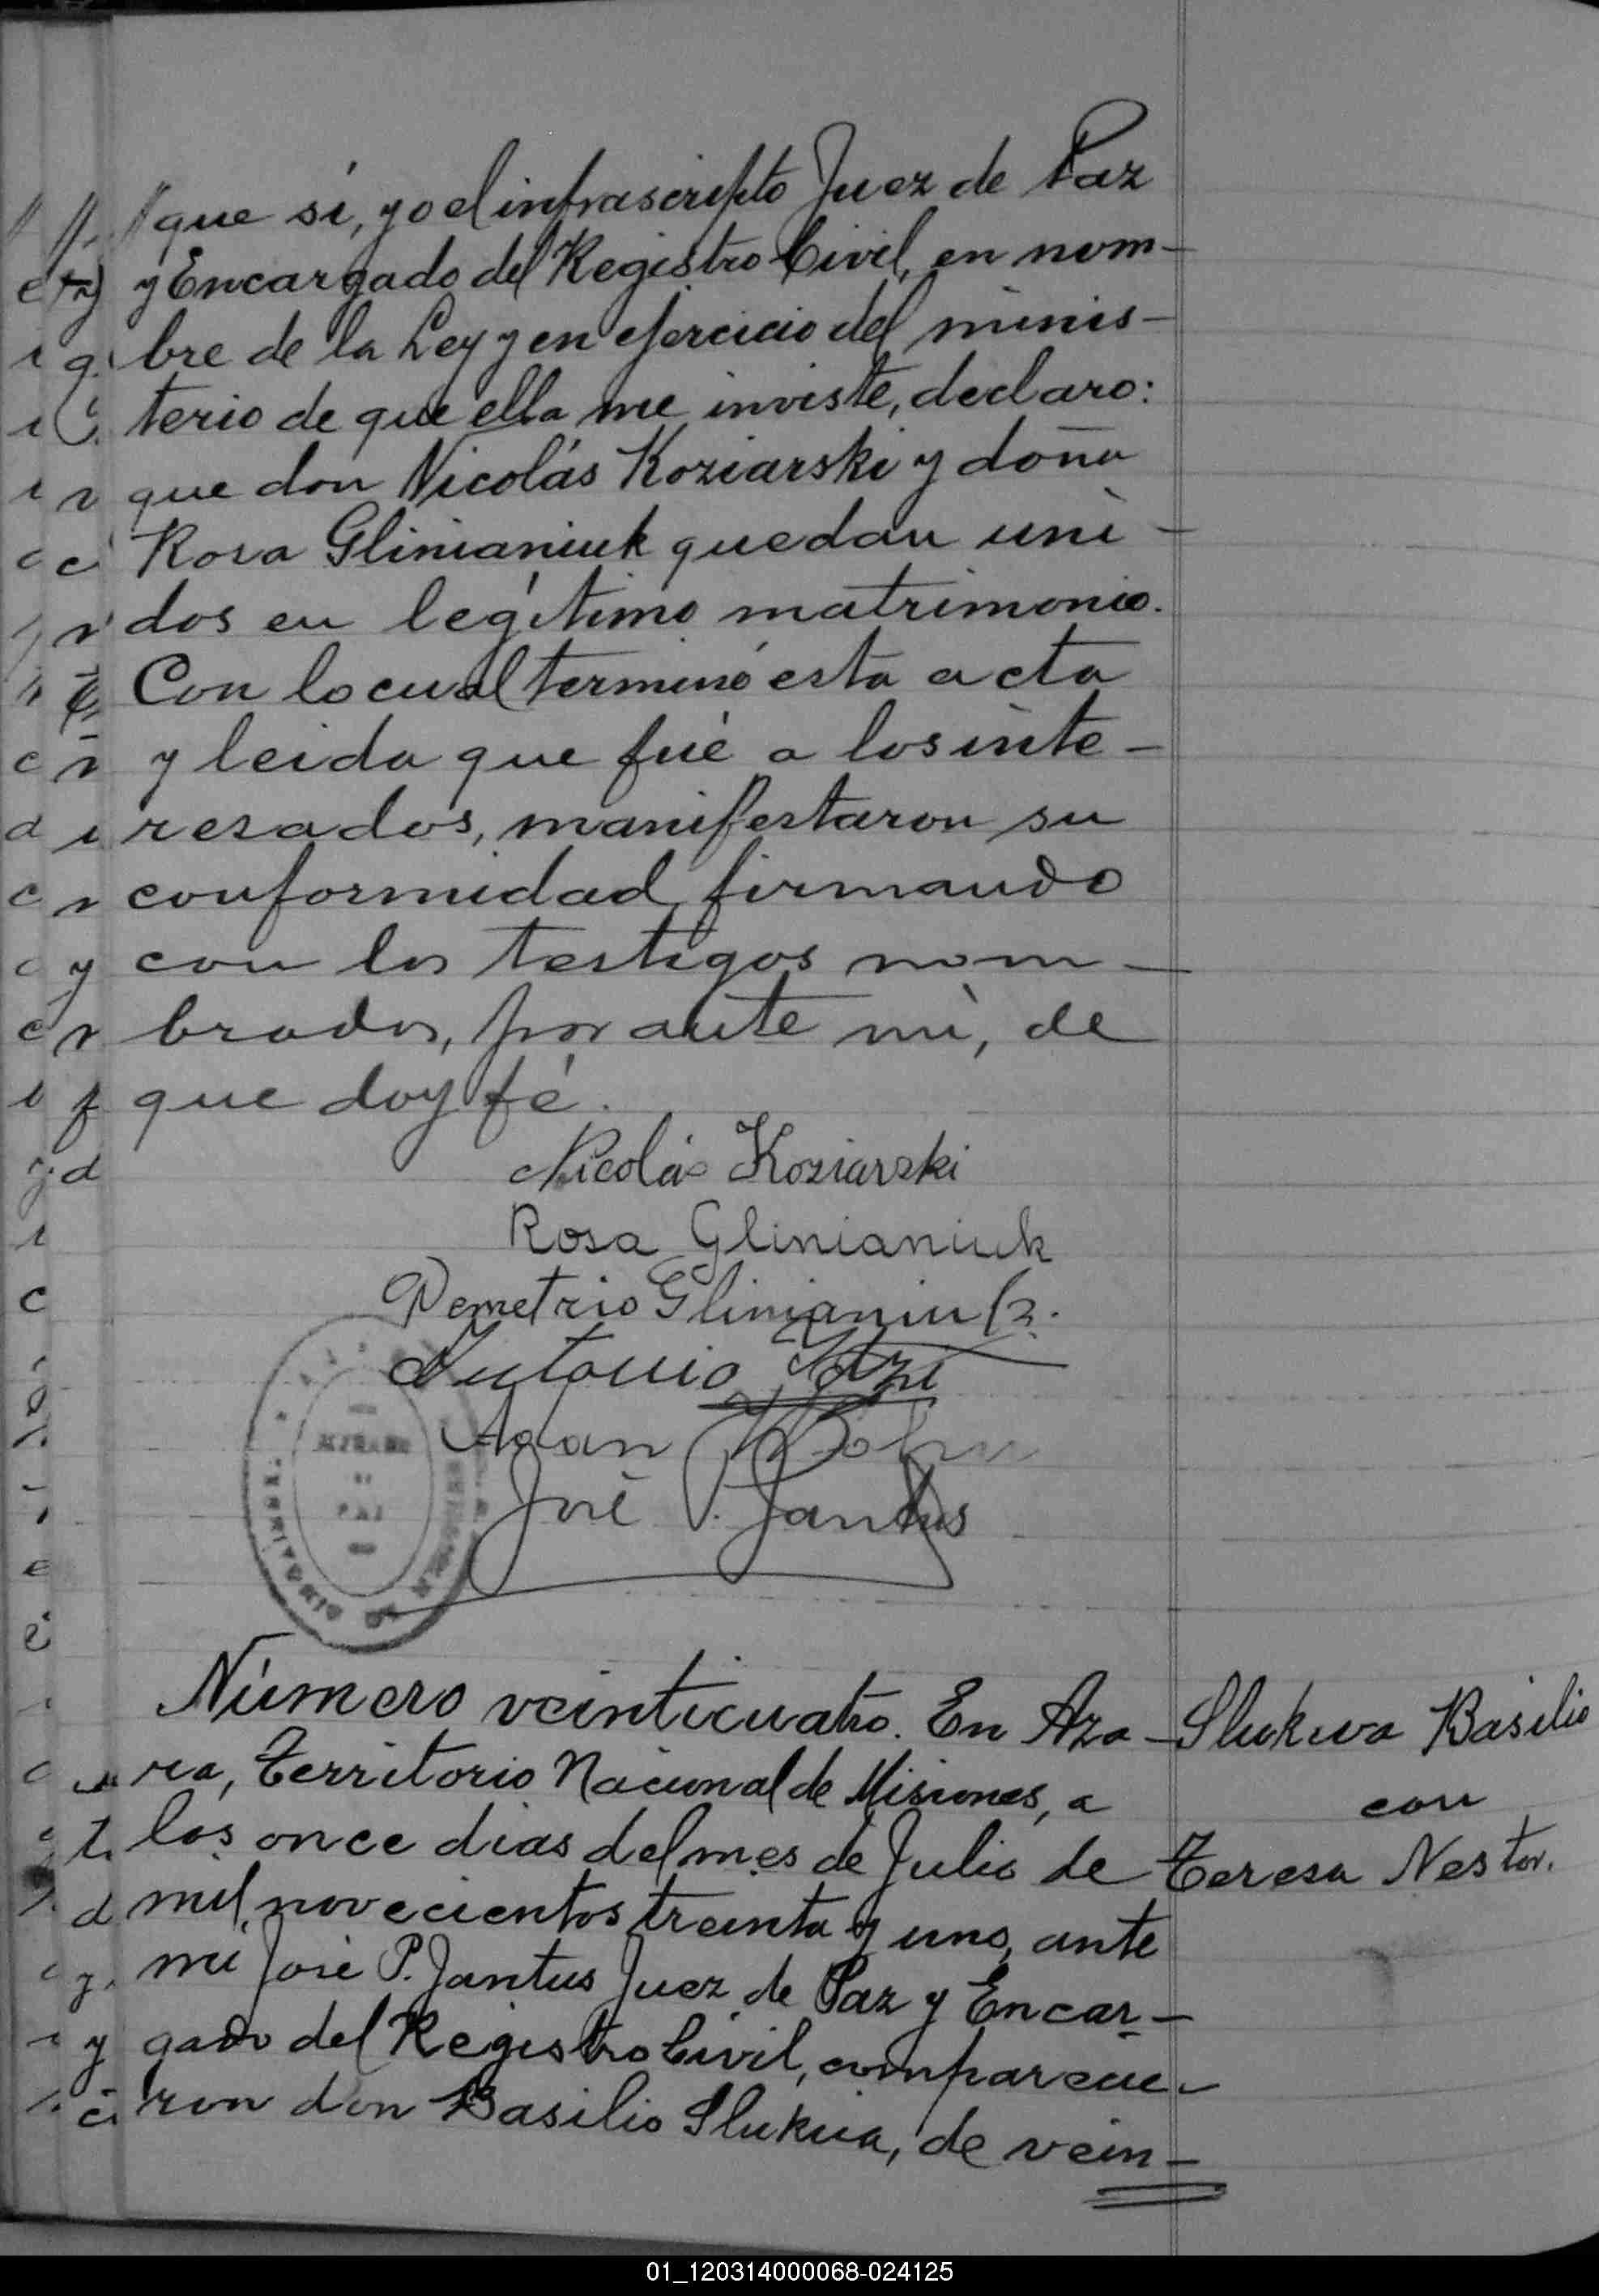 // que si, yo el infrascripto Juez de Paz
y Encargado del Registro Civil, en nom-
bre de la Ley y en ejercicio del minis-
terio de que ella me inviste, declaro:
que don Nicolás Koziarski y doña
Rosa Glinianiuk quedan uni-
dos en legítimo matrimonio.
Con lo cual terminó esta acta
y leida que fué a los inte-
resados, manifestaron su
conformidad firmando
con los testigos nom-
brados, por ante mi, de
que doy fé.
Nicolás Koziarski
Rosa Glinianiuk
Demetrio Glinianiuk.
Antonio
José P. Jantus
JUZGADO
DE
PAZ
TERRITORIO DE MISIONES
Número veinticuatro. En Aza-
ra, Territorio Nacional de Misiones, a
los once dias del mes de Julio de
mil novecientos treinta y uno, ante
mi José P. Jantus Juez de Paz y Encar-
gado del Registro Civil, comparecie-
ron don Basilio Slukua, de vein-
Slukwa Basilio
con
Teresa Nestor.
01_120314000068-024125